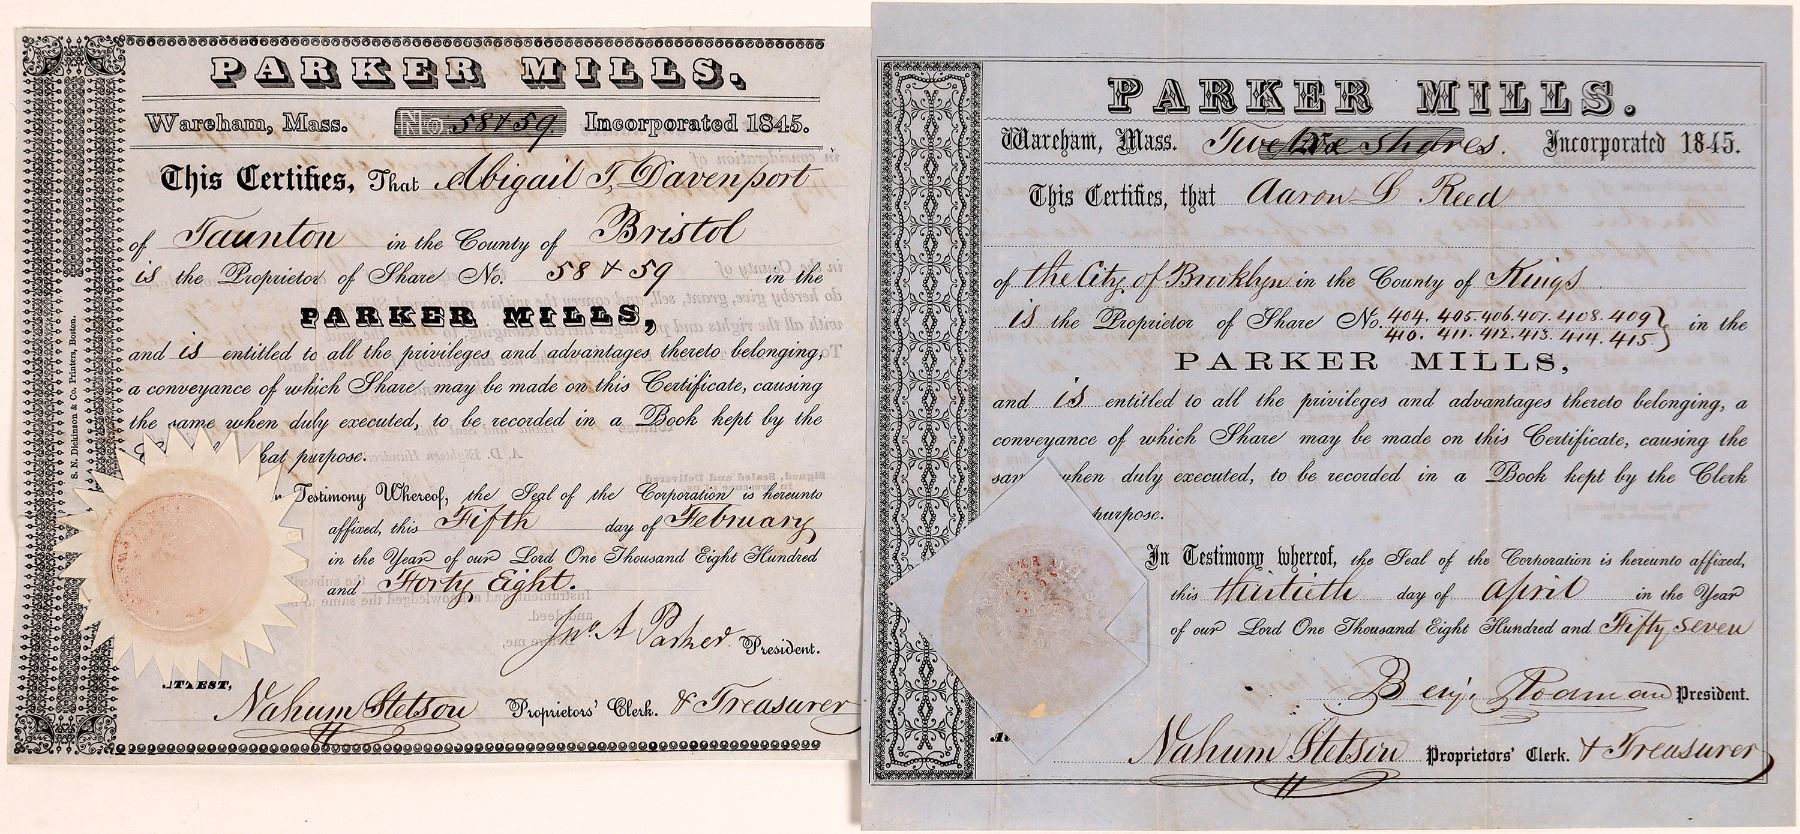 PARKER MILLS.
Wareham, Mass. No. 58 & 59. Incorporated 1845.
This Certifies, That Abigail T, Davenport
of Taunton in the County of Bristol
is the Proprietor of Share No. 58 & 59 in the
PARKER MILLS,
and is entitled to all the privileges and advantages thereto belonging,
a conveyance of which Share may be made on this Certificate, causing
the same when duly executed, to be recorded in a Book kept by the
hat purpose.
Testimony Whereof, the Seal of the Corporation is hereunto
affixed, this Fifth day of February
in the Year of our Lord One Thousand Eight Hundred
and Forty Eight.
Jno A Parker President.
ATTEST,
Nahum Stetson Proprietors' Clerk. & Treasurer
S. N. Dickinson & Co. Printers, Boston.
PARKER MILLS.
Wareham, Mass. Twelve Shares. Incorporated 1845.
This Certifies, that Aaron L Reed
of the City of Brooklyn in the County of Kings
is the Proprietor of Share No. 404. 405. 406. 407. 408. 409 in the
410. 411. 412. 413. 414. 415.
PARKER MILLS,
and is entitled to all the privileges and advantages thereto belonging, a
conveyance of which Share may be made on this Certificate, causing the
when duly executed, to be recorded in a Book kept by the Clerk
purpose.
In Testimony whereof, the Seal of the Corporation is hereunto affixed,
this thirtieth day of April in the Year
of our Lord One Thousand Eight Hundred and Fifty seven
Benj. Rodman President.
Nahum Stetson Proprietors' Clerk. & Treasurer